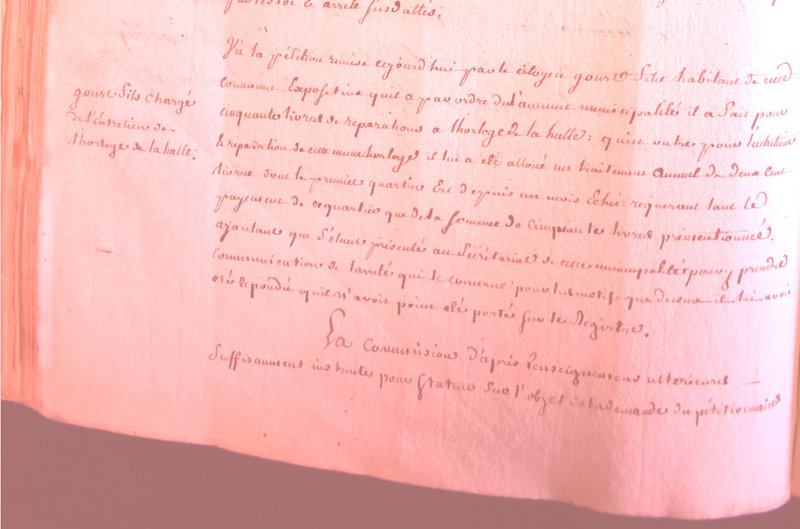 arrêté susdattés.
gourt fils chargé
de l'Entretien de
l'horloge de la halle:
Vû la pétition remise cejourd'hui par le citoyen gourt fils habitant de cette
commune Expositive qu'il a par ordre de l'ancienne municipalité il a fait pour
cinquante livres de reparations a l'horloge de la halle: qu'en outre pour l'entretien
& reparation de cette meme horloge il lui a eté alloué un traitement annuel de deux cent
livres dont le premier quartier Est depuis un mois Echu: requerant tant le
payement de ce quartier que de la somme de cinquante livres prémentionnée.
ajoutant que s'étant présenté au Sécrétariat de cette municipalité pour y prendre
communication de l'arrêté qui le concerne pour les motifs que dessus il lui avoit
eté Repondu qu'il n'avoit point eté porté sur le Registre.
La commission d'après renseignemens ulterieurs
suffisamment instruite pour statuer sur l'objet de la demande du pétitionnaire